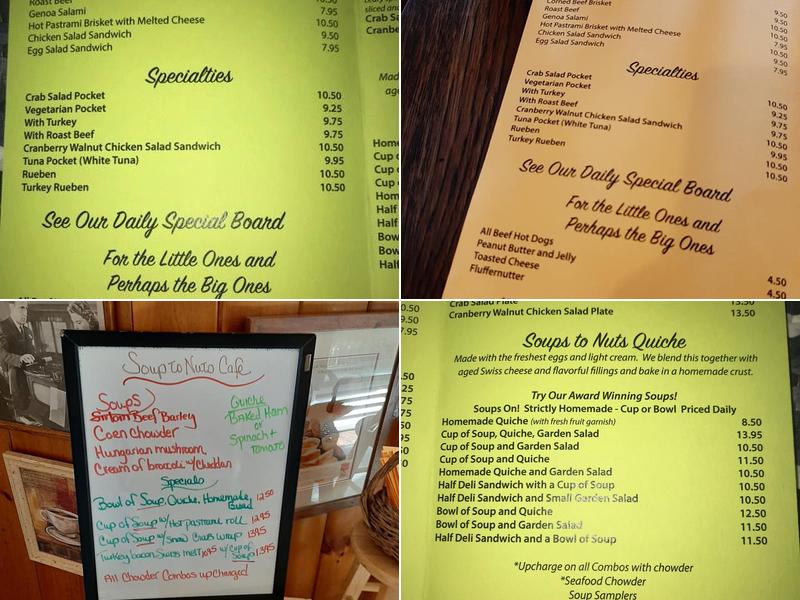 Roast Beef
Genoa Salami 7.95
Hot Pastrami Brisket with Melted Cheese 10.50
Chicken Salad Sandwich 9.50
Egg Salad Sandwich 7.95
Specialties
Crab Salad Pocket 10.50
Vegetarian Pocket 9.25
With Turkey 9.75
With Roast Beef 9.75
Cranberry Walnut Chicken Salad Sandwich 10.50
Tuna Pocket (White Tuna) 9.95
Rueben 10.50
Turkey Rueben 10.50
See Our Daily Special Board
For the Little Ones and
Perhaps the Big Ones
sliced and
Crab Sa
Cranbe
Made
age
Home
Cup o
Cup o
Cup o
Hom
Half
Half
Bow
Bow
Half
Corned Beef Brisket
Roast Beef 9.50
Genoa Salami 10.50
Hot Pastrami Brisket with Melted Cheese 7.95
Chicken Salad Sandwich 10.50
Egg Salad Sandwich 9.50
7.95
Specialties
Crab Salad Pocket 10.50
Vegetarian Pocket 9.25
With Turkey 9.75
With Roast Beef 9.75
Cranberry Walnut Chicken Salad Sandwich 10.50
Tuna Pocket (White Tuna) 9.95
Rueben 10.50
Turkey Rueben 10.50
See Our Daily Special Board
For the Little Ones and
Perhaps the Big Ones
All Beef Hot Dogs 4.50
Peanut Butter and Jelly 4.50
Toasted Cheese
Fluffernutter
Soup to Nuts Cafe
Soups
Beef Barley
Corn Chowder
Hungarian mushroom
Cream of broccoli w/Cheddar
Quiche
Baked Ham
or
Spinach +
Tomato
Specials
Bowl of Soup, Quiche, Homemade Bread 12.50
Cup of Soup w/ Hot pastrami roll 12.95
Cup of Soup w/ Snow Crab Wrap 13.95
Turkey bacon Swiss melt 10.95 w/ Cup of Soup 13.95
All Chowder Combos upcharged
Crab Salad Plate 13.50
Cranberry Walnut Chicken Salad Plate 13.50
Soups to Nuts Quiche
Made with the freshest eggs and light cream. We blend this together with
aged Swiss cheese and flavorful fillings and bake in a homemade crust.
Try Our Award Winning Soups!
Soups On! Strictly Homemade - Cup or Bowl Priced Daily
Homemade Quiche (with fresh fruit garnish) 8.50
Cup of Soup, Quiche, Garden Salad 13.95
Cup of Soup and Garden Salad 10.50
Cup of Soup and Quiche 11.50
Homemade Quiche and Garden Salad 10.50
Half Deli Sandwich with a Cup of Soup 10.50
Half Deli Sandwich and Small Garden Salad 10.50
Bowl of Soup and Quiche 12.50
Bowl of Soup and Garden Salad 11.50
Half Deli Sandwich and a Bowl of Soup 11.50
*Upcharge on all Combos with chowder
*Seafood Chowder
Soup Samplers